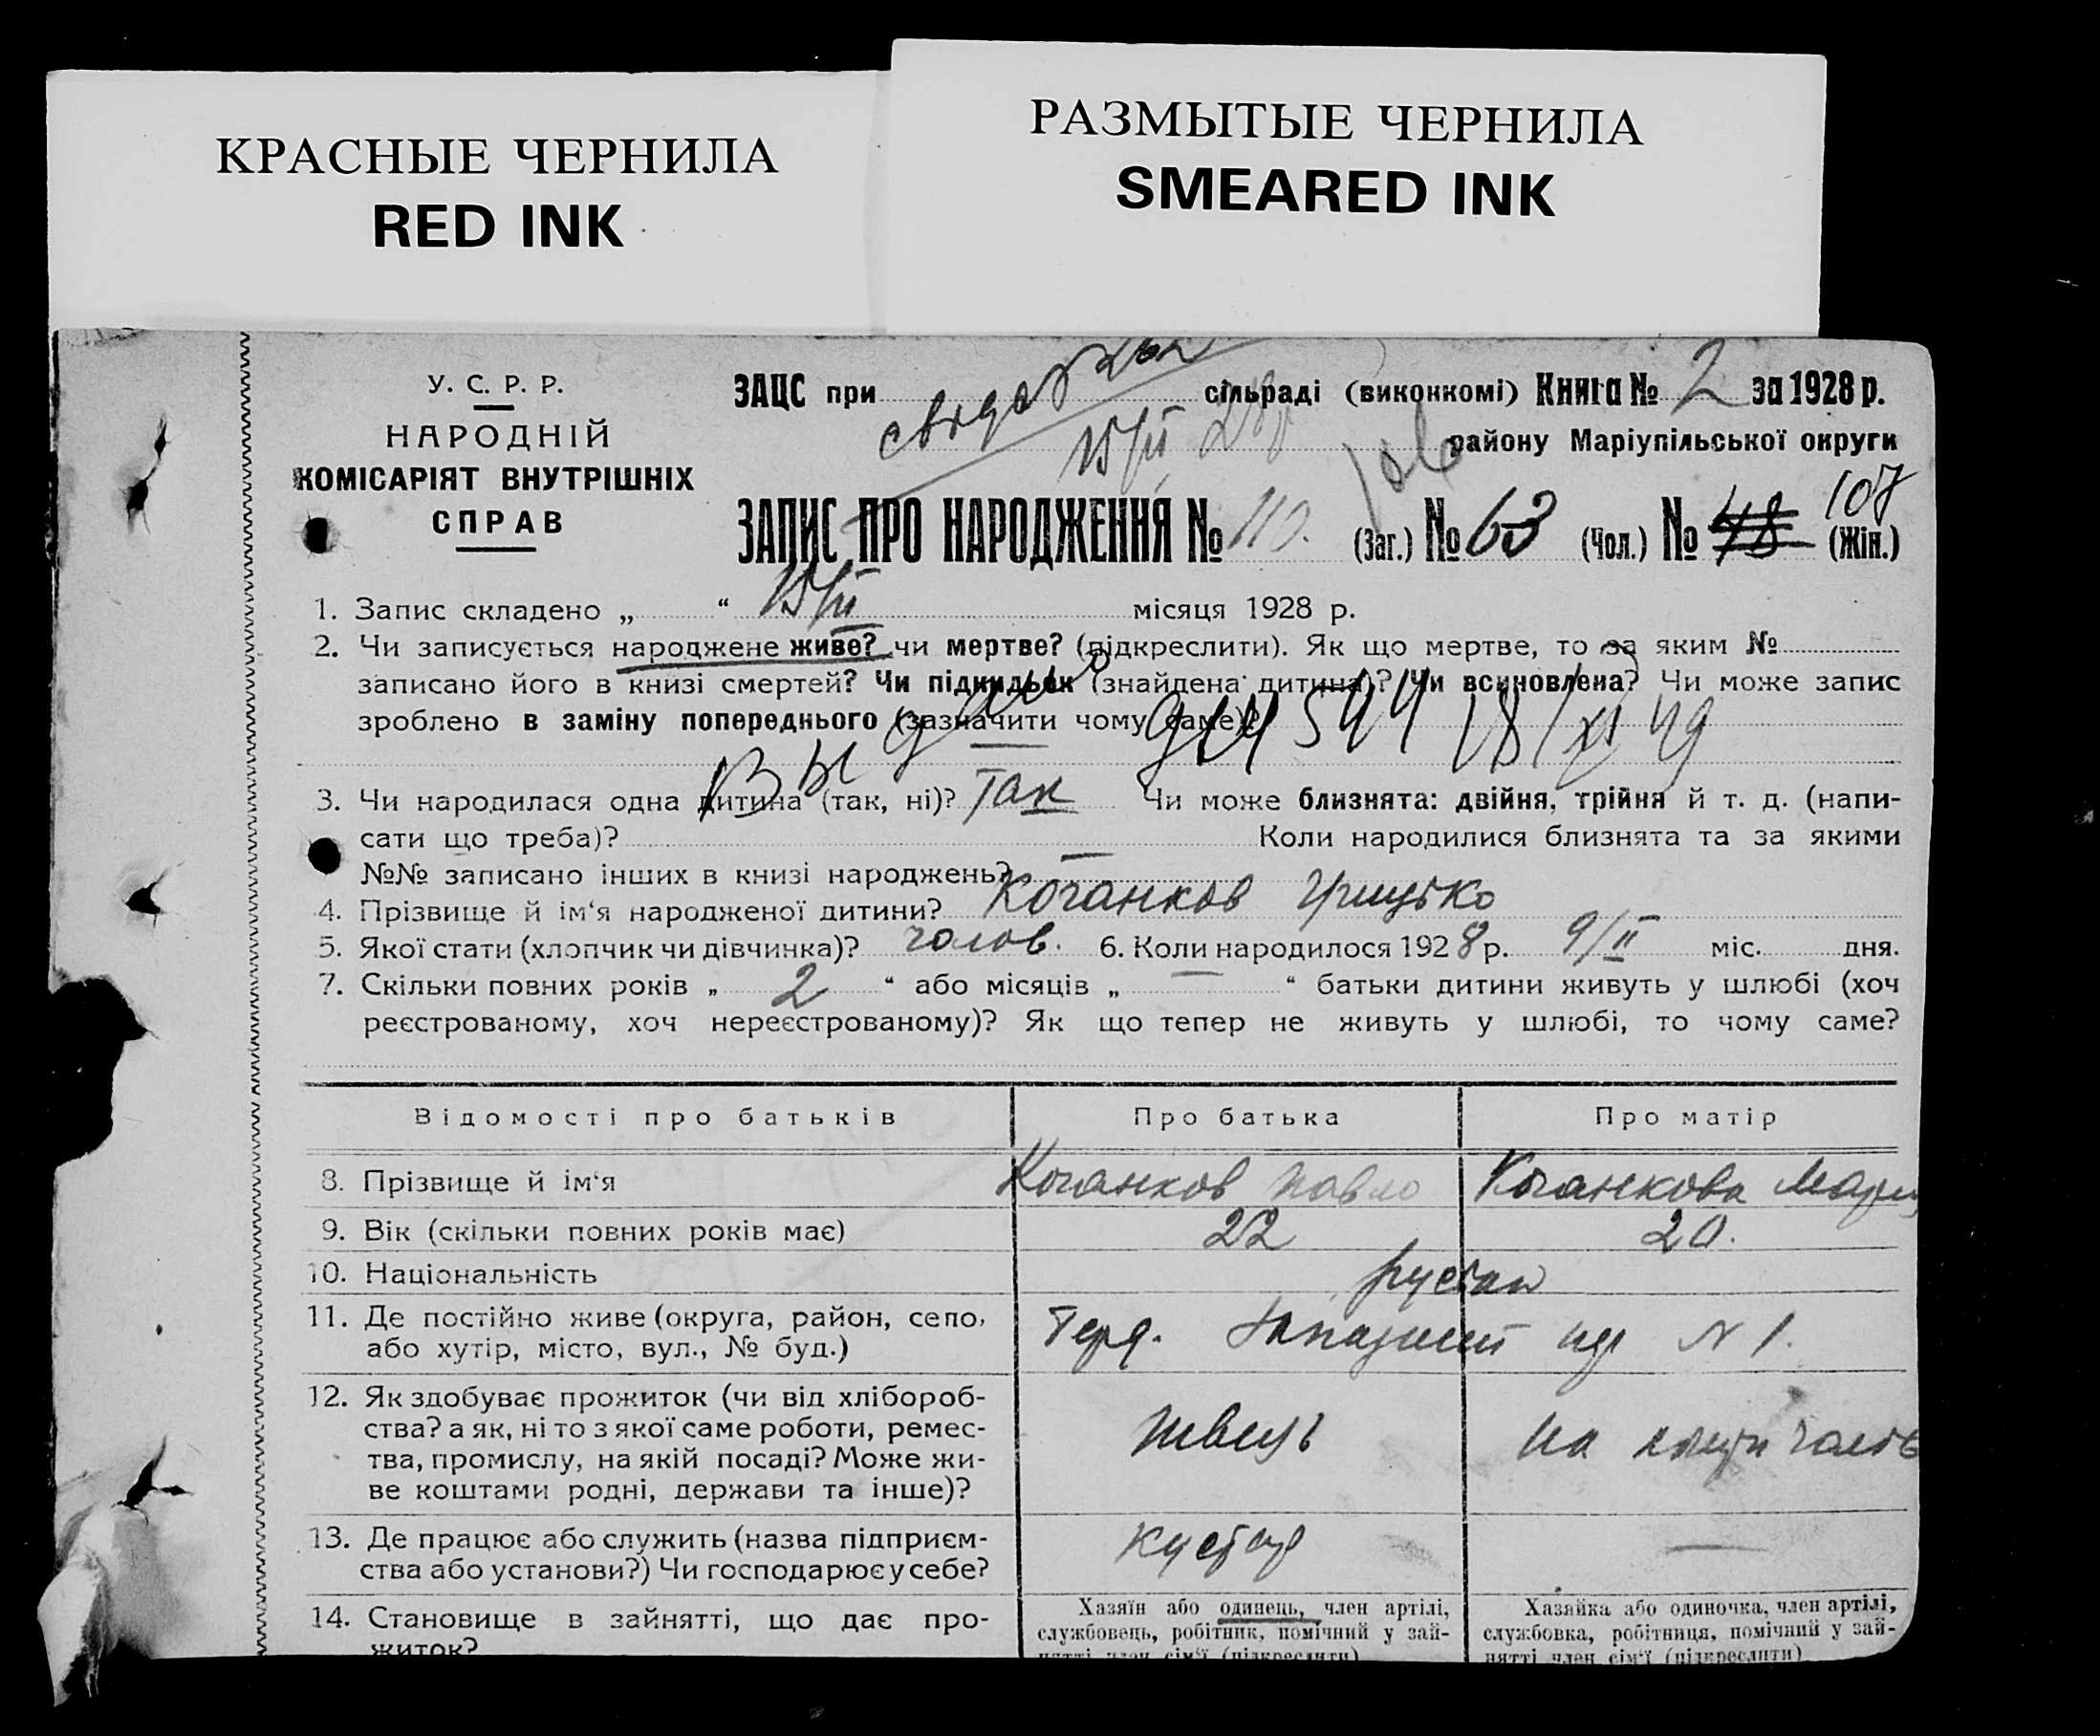 КРАСНЫЕ ЧЕРНИЛА
RED INK
РАЗМЫТЫЕ ЧЕРНИЛА
SMEARED INK
У. С. Р. Р.
НАРОДНІЙ
КОМІСАРІЯТ ВНУТРІШНІХ
СПРАВ
ЗАЦС при сільраді (виконкомі) Книга № 2 за 1928 р.
15/II 28 р району Маріупільської округи
106
107
ЗАПИС ПРО НАРОДЖЕННЯ № 110. (Заг.) № 63 (Чол.) № 48 (Жін.)
1. Запис складено „ “ 15/II місяця 1928 р.
2. Чи записується народжене живе? чи мертве? (підкреслити). Як що мертве, то за яким №
записано його в книзі смертей? Чи підкидьок (знайдена дитина)? Чи всиновлена? Чи може запис
зроблено в заміну попереднього (зазначити чому саме)?
Выдано 18/XI 49
3. Чи народилася одна дитина (так, ні)? Так Чи може близнята: двійня, трійня й т. д. (напи-
сати що треба)? Коли народилися близнята та за якими
№№ записано інших в книзі народжень? —
4. Прізвище й ім‘я народженої дитини? Коганков Грицько
5. Якої стати (хлопчик чи дівчинка)? чолов. 6. Коли народилося 1928 р. 9/II міс. дня.
7. Скільки повних років „ 2 “ або місяців „ — “ батьки дитини живуть у шлюбі (хоч
реєстрованому, хоч нереєстрованому)? Як що тепер не живуть у шлюбі, то чому саме?
Відомості про батьків Про батька Про матір
8. Прізвище й ім‘я Коганков Павло Коганкова Мария
9. Вік (скільки повних років має) 22 20.
10. Національність
11. Де постійно живе (округа, район, село,
або хутір, місто, вул., № буд.) N 1.
12. Як здобуває прожиток (чи від хлібороб-
ства? а як, ні то з якої саме роботи, ремес-
тва, промислу, на якій посаді? Може жи-
ве коштами родні, держави та інше)?
швець
на кошти чолов
13. Де працює або служить (назва підприєм-
ства або установи?) Чи господарює у себе?
кустар —
14. Становище в зайнятті, що дає про-
житок?
Хазяїн або одинець, член артілі,
службовець, робітник, помічний у зай-
нятті член сім‘ї (підкреслити)
Хазяйка або одиночка, член артілі,
службовка, робітниця, помічний у зай-
нятті член сім‘ї (підкреслити)